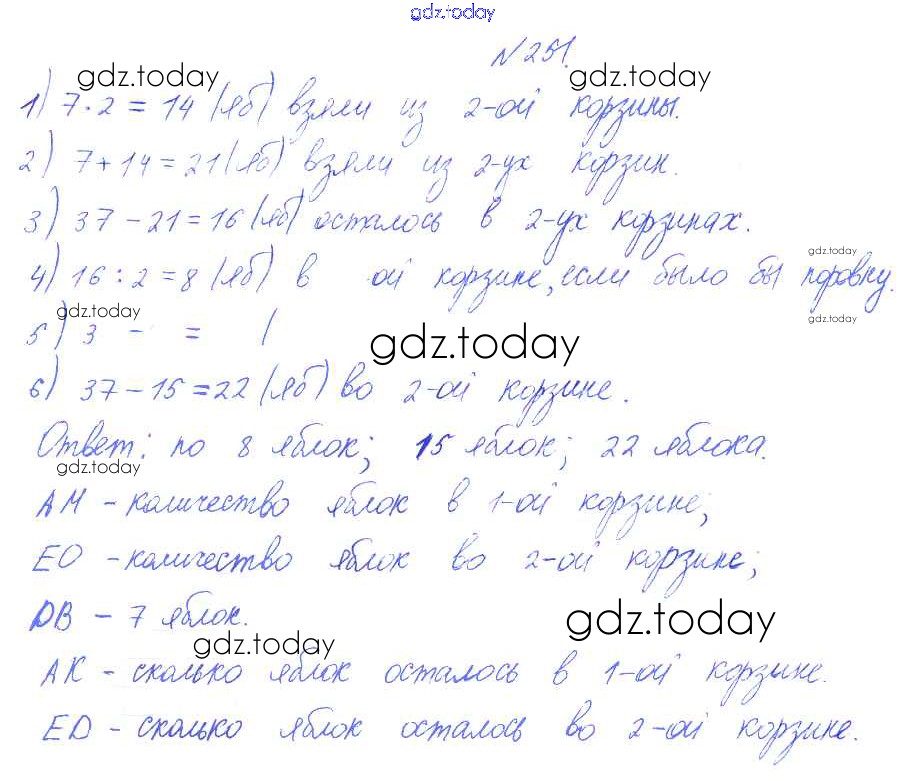 gdz.today
№ 251.
gdz.today gdz.today
1) 7·2 = 14 (яб) взяли из 2-ой корзины.
2) 7+14=21(яб) взяли из 2-ух корзин.
3) 37-21=16 (яб) осталось в 2-ух корзинах.
gdz.today
4) 16:2=8 (яб) в -ой корзине, если было бы поровну.
gdz.today gdz.today
5) 3 - = (
gdz.today
6) 37-15=22 (яб) во 2-ой корзине.
Ответ: по 8 яблок; 15 яблок; 22 яблока.
gdz.today
АМ - количество яблок в 1-ой корзине;
ЕО - количество яблок во 2-ой корзине;
DB - 7 яблок.
gdz.today
gdz.today
АК - сколько яблок осталось в 1-ой корзине.
ED - сколько яблок осталось во 2-ой корзине.